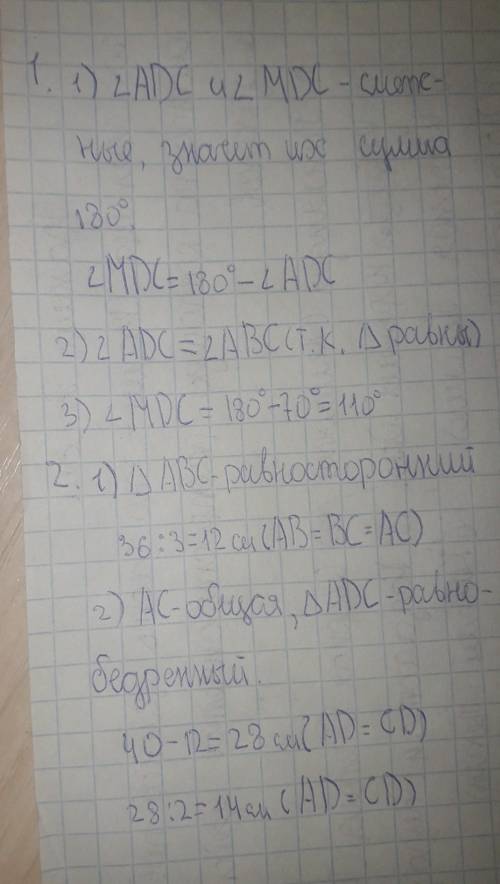 1. 1) ∠ADC и ∠MDC - смеж-
ные, значит их сумма
180°.
∠MDC = 180° - ∠ADC
2) ∠ADC = ∠ABC (т.к. Δ равны)
3) ∠MDC = 180° - 70° = 110°
2. 1) Δ ABC - равносторонний
36 : 3 = 12 см (AB = BC = AC)
2) AC - общая, Δ ADC - равно-
бедренный.
40 - 12 = 28 см (AD = CD)
28 : 2 = 14 см (AD = CD)